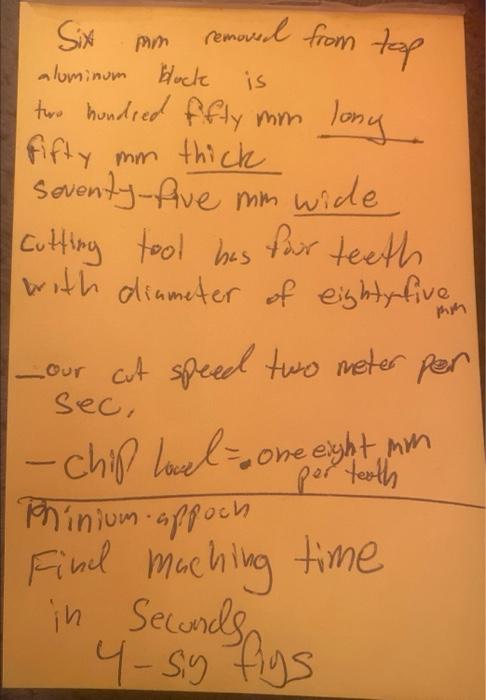 Six mm removed from top
aluminum block is
two hundred fifty mm long
fifty mm thick
seventy-five mm wide
cutting tool has four teeth
with diameter of eighty-five
mm
-our cut speed two meter per
sec.
- chip load = .one eight mm
per teeth
minium.appoch
Find maching time
in Seconds
4-sig figs